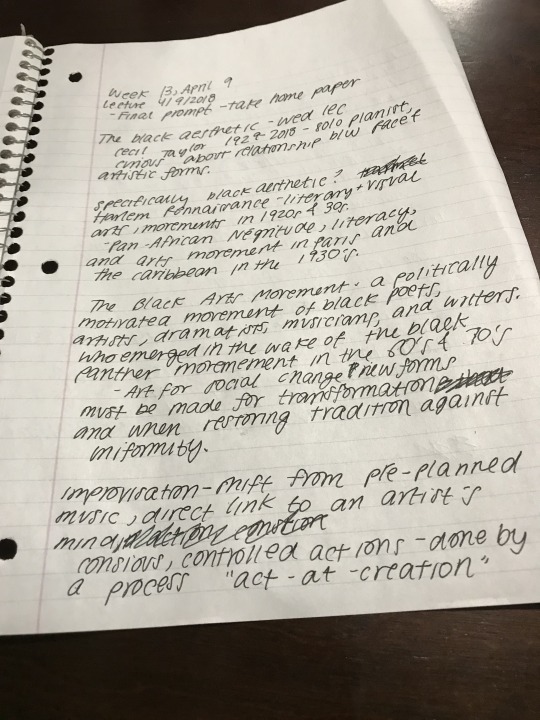 Week 13, April 9
Lecture 4/9/2018
- Final prompt - take home paper
The black aesthetic - wed lec
Cecil Taylor 1929-2018 - solo pianist,
curious about relationship b/w facet
artistic forms.
specifically black aesthetic?
Harlem Rennairance - literary + visual
arts, movements in 1920s & 30s.
- Pan-African Negritude, literacy,
and arts movement in paris and
the caribbean in the 1930's.
The Black Arts Movement - a politically
motivated movement of black poets,
artists, dramatists, musicians, and writers.
who emerged in the wake of the black
panther movement in the 60's & 70's
- Art for social change & new forms
must be made for transformation
and when restoring tradition against
uniformity.
improvisation - shift from pre-planned
music, direct link to an artist's
mind,
consious, controlled actions - done by
a process "act-at-creation"